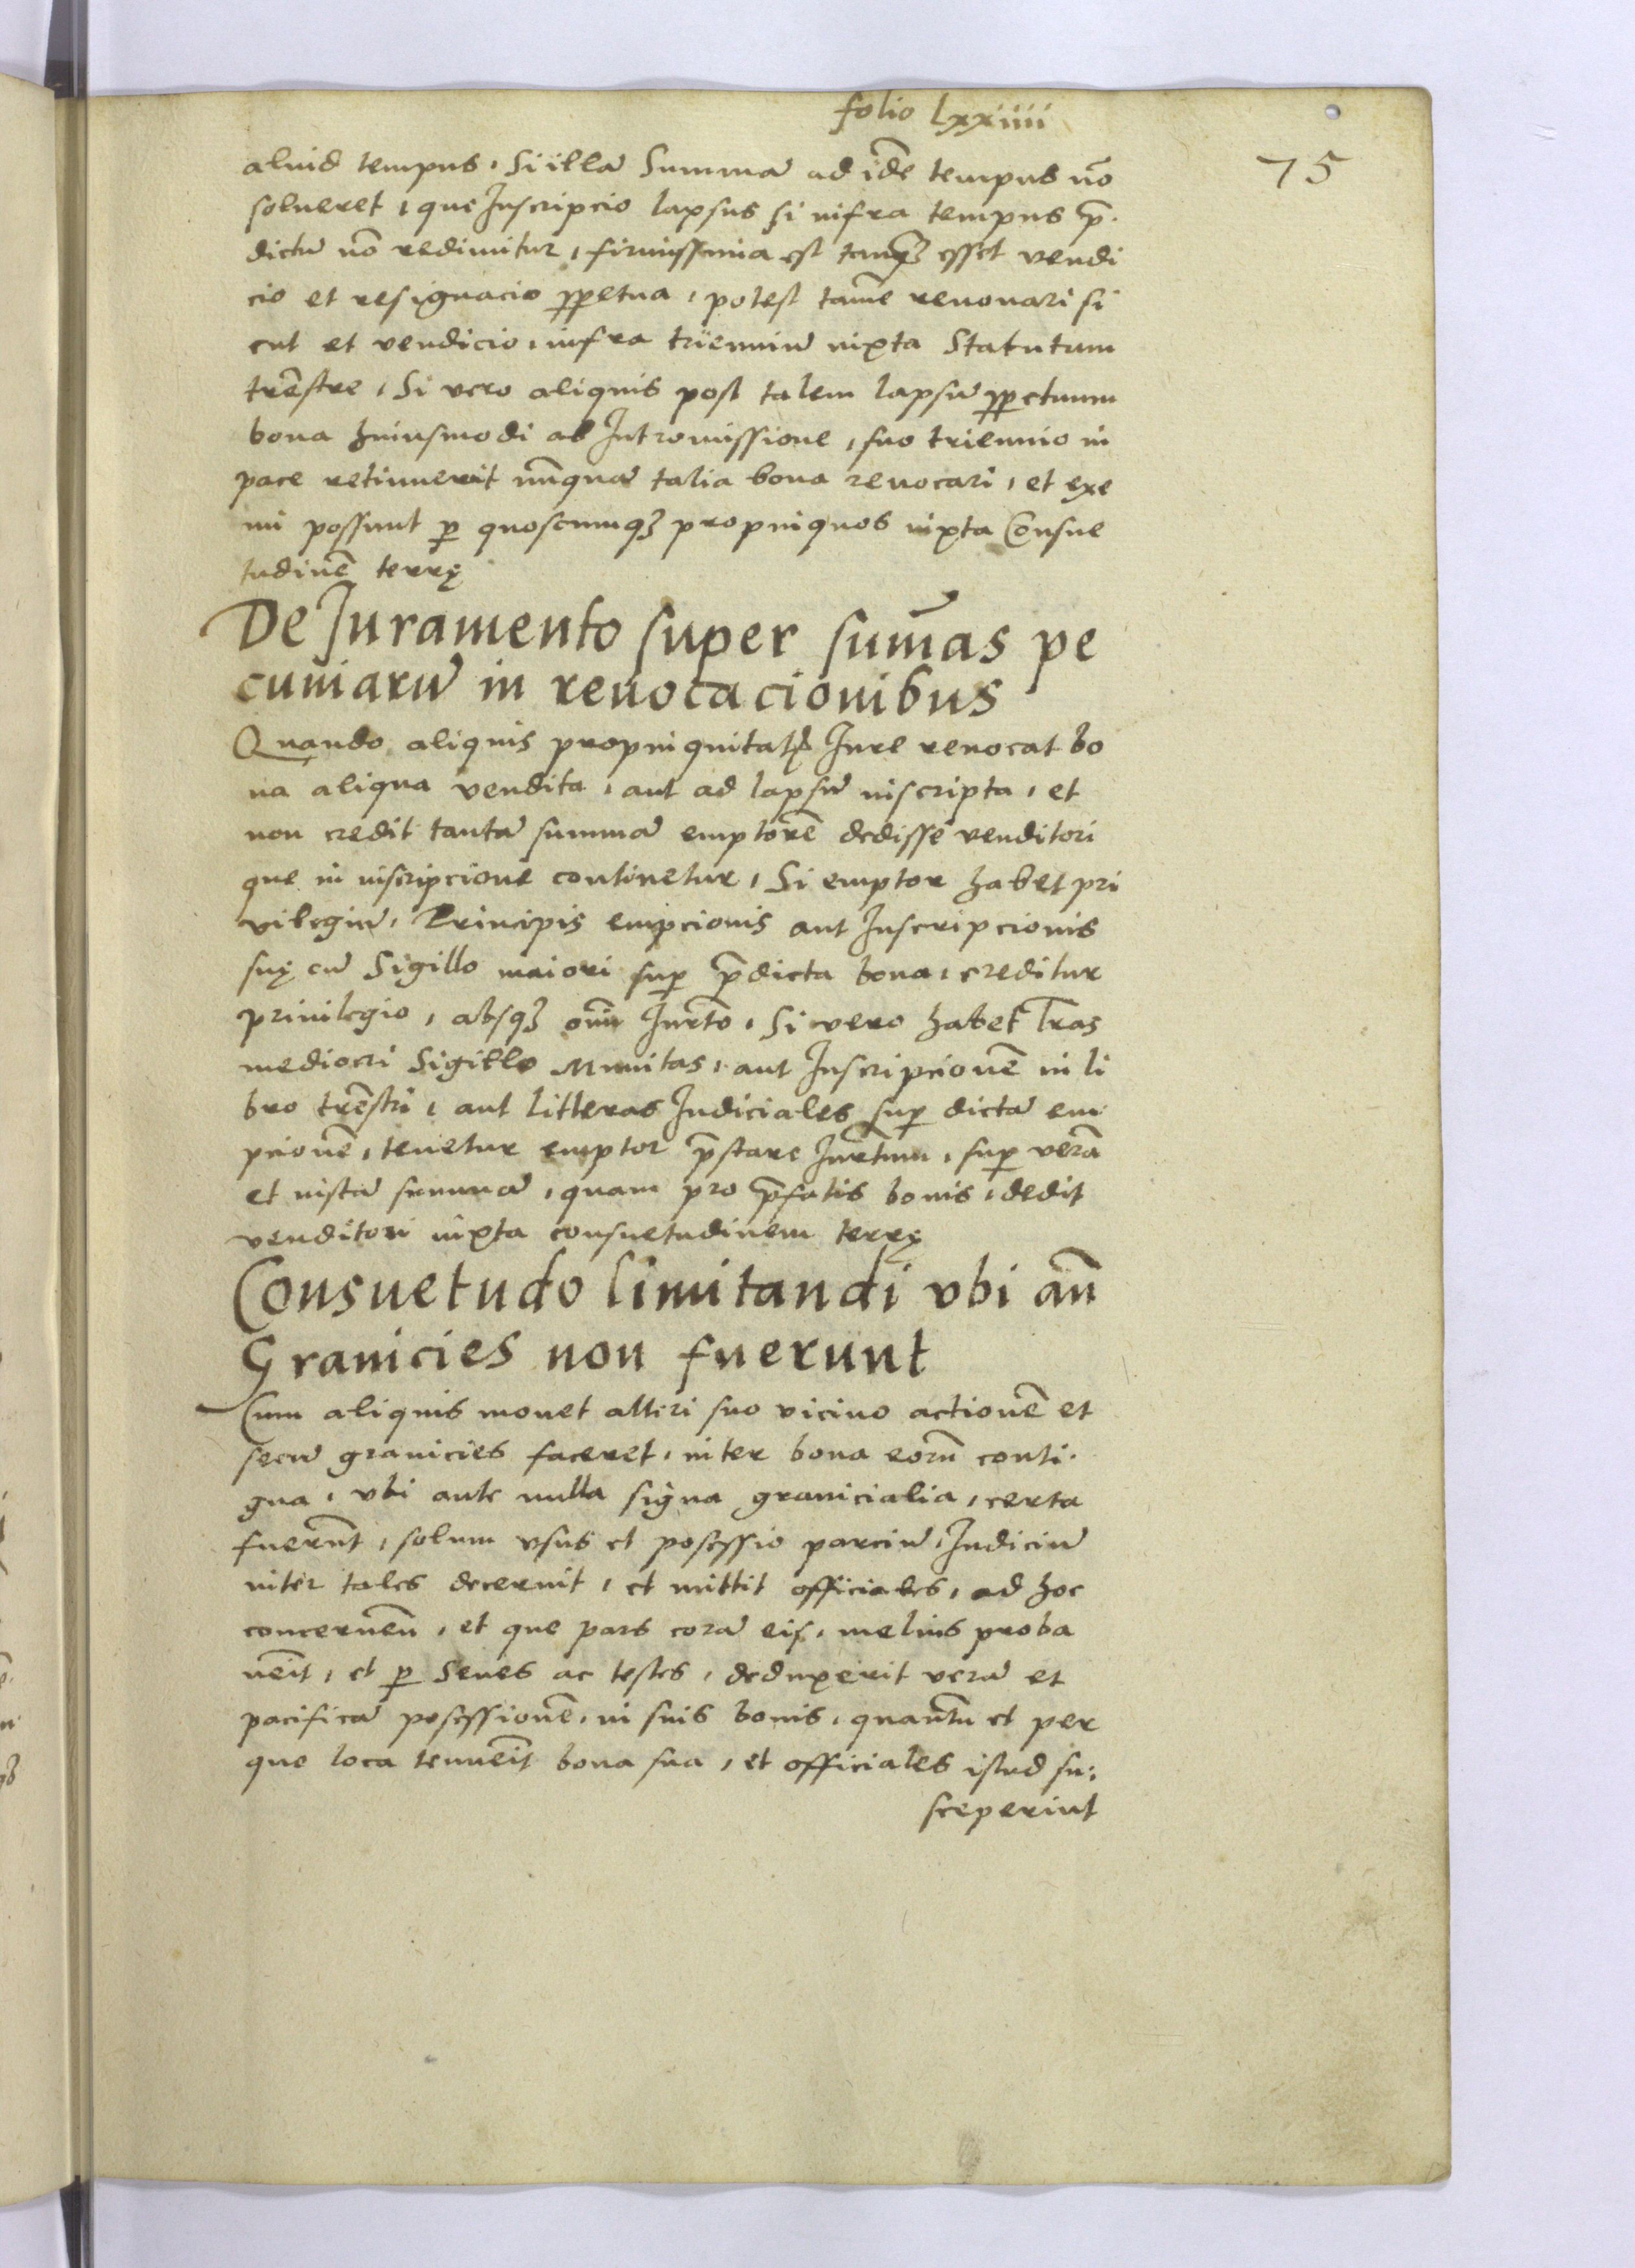 folio Lxxiiii
75
aliud tempus, Si illā Summā ad idē tempus nō
solueret, que Inscripcio lapsus si infra tempus p̄-
dictū nō redimitur, firmissima est tanqȝ esset vendi
cio et resignacio ꝑpetua, potest tamē reuouari si
cut et vendicio, infra trienniū iuxta Statutum
trēstre, Si vero aliquis post talem lapsū ꝑpetuum
bona huiusmodi ab Intromissione, suo triennio in
pace retinuerit nūnquā talia bona reuocari, et exe
mi possunt ꝑ quoscumqȝ propinquos iuxta Consue
tudinē terrę
De Juramento super sum̄as pe
cuniarū in reuocacionibus
Quando aliquis propinquitatꝭ Jure reuocat bo
na aliqua vendita, aut ad lapsū inscripta, et
non credit tantā summā emptorē dedisse venditori
que in inscripcione continetur, Si emptor habet pri
vilegiū, Principis empcionis aut Inscripcionis
suę cū Sigillo maiori suꝑ p̄dicta bona, creditur
priuilegio, absqȝ om̄i Jurto̅, Si vero habet l̄ras
mediocri Sigillo Munitas, aut Inscripcionē in li
bro trēstri, aut litteras Judiciales suꝑ dictā em
pcionē, tenetur emptor p̄stare Jurtum̅, suꝑ verā
et iustā summā, quam pro p̄fatis bonis, dedit
venditori iuxta consuetudinem terrę
Consuetudo limitandi vbi an̄
Granicies non fuerunt
Cum aliquis mouet alteri suo vicino actionē et
secū granicies faceret, inter bona eorū conti-
gua, vbi ante nulla signa granicialia, certa
fuerūt, solum vsus et posessio parciū, Judiciū
inter tales decernit, et mittit officiales, ad hoc
concernen̄, et que pars corā eis, melius proba
ueīt, et ꝑ Senes ac testes, deduxerit verā et
pacificā posessionē, in suis bonis, quantū et per
que loca tenueīt bona sua, et officiales istud su:
sceperint